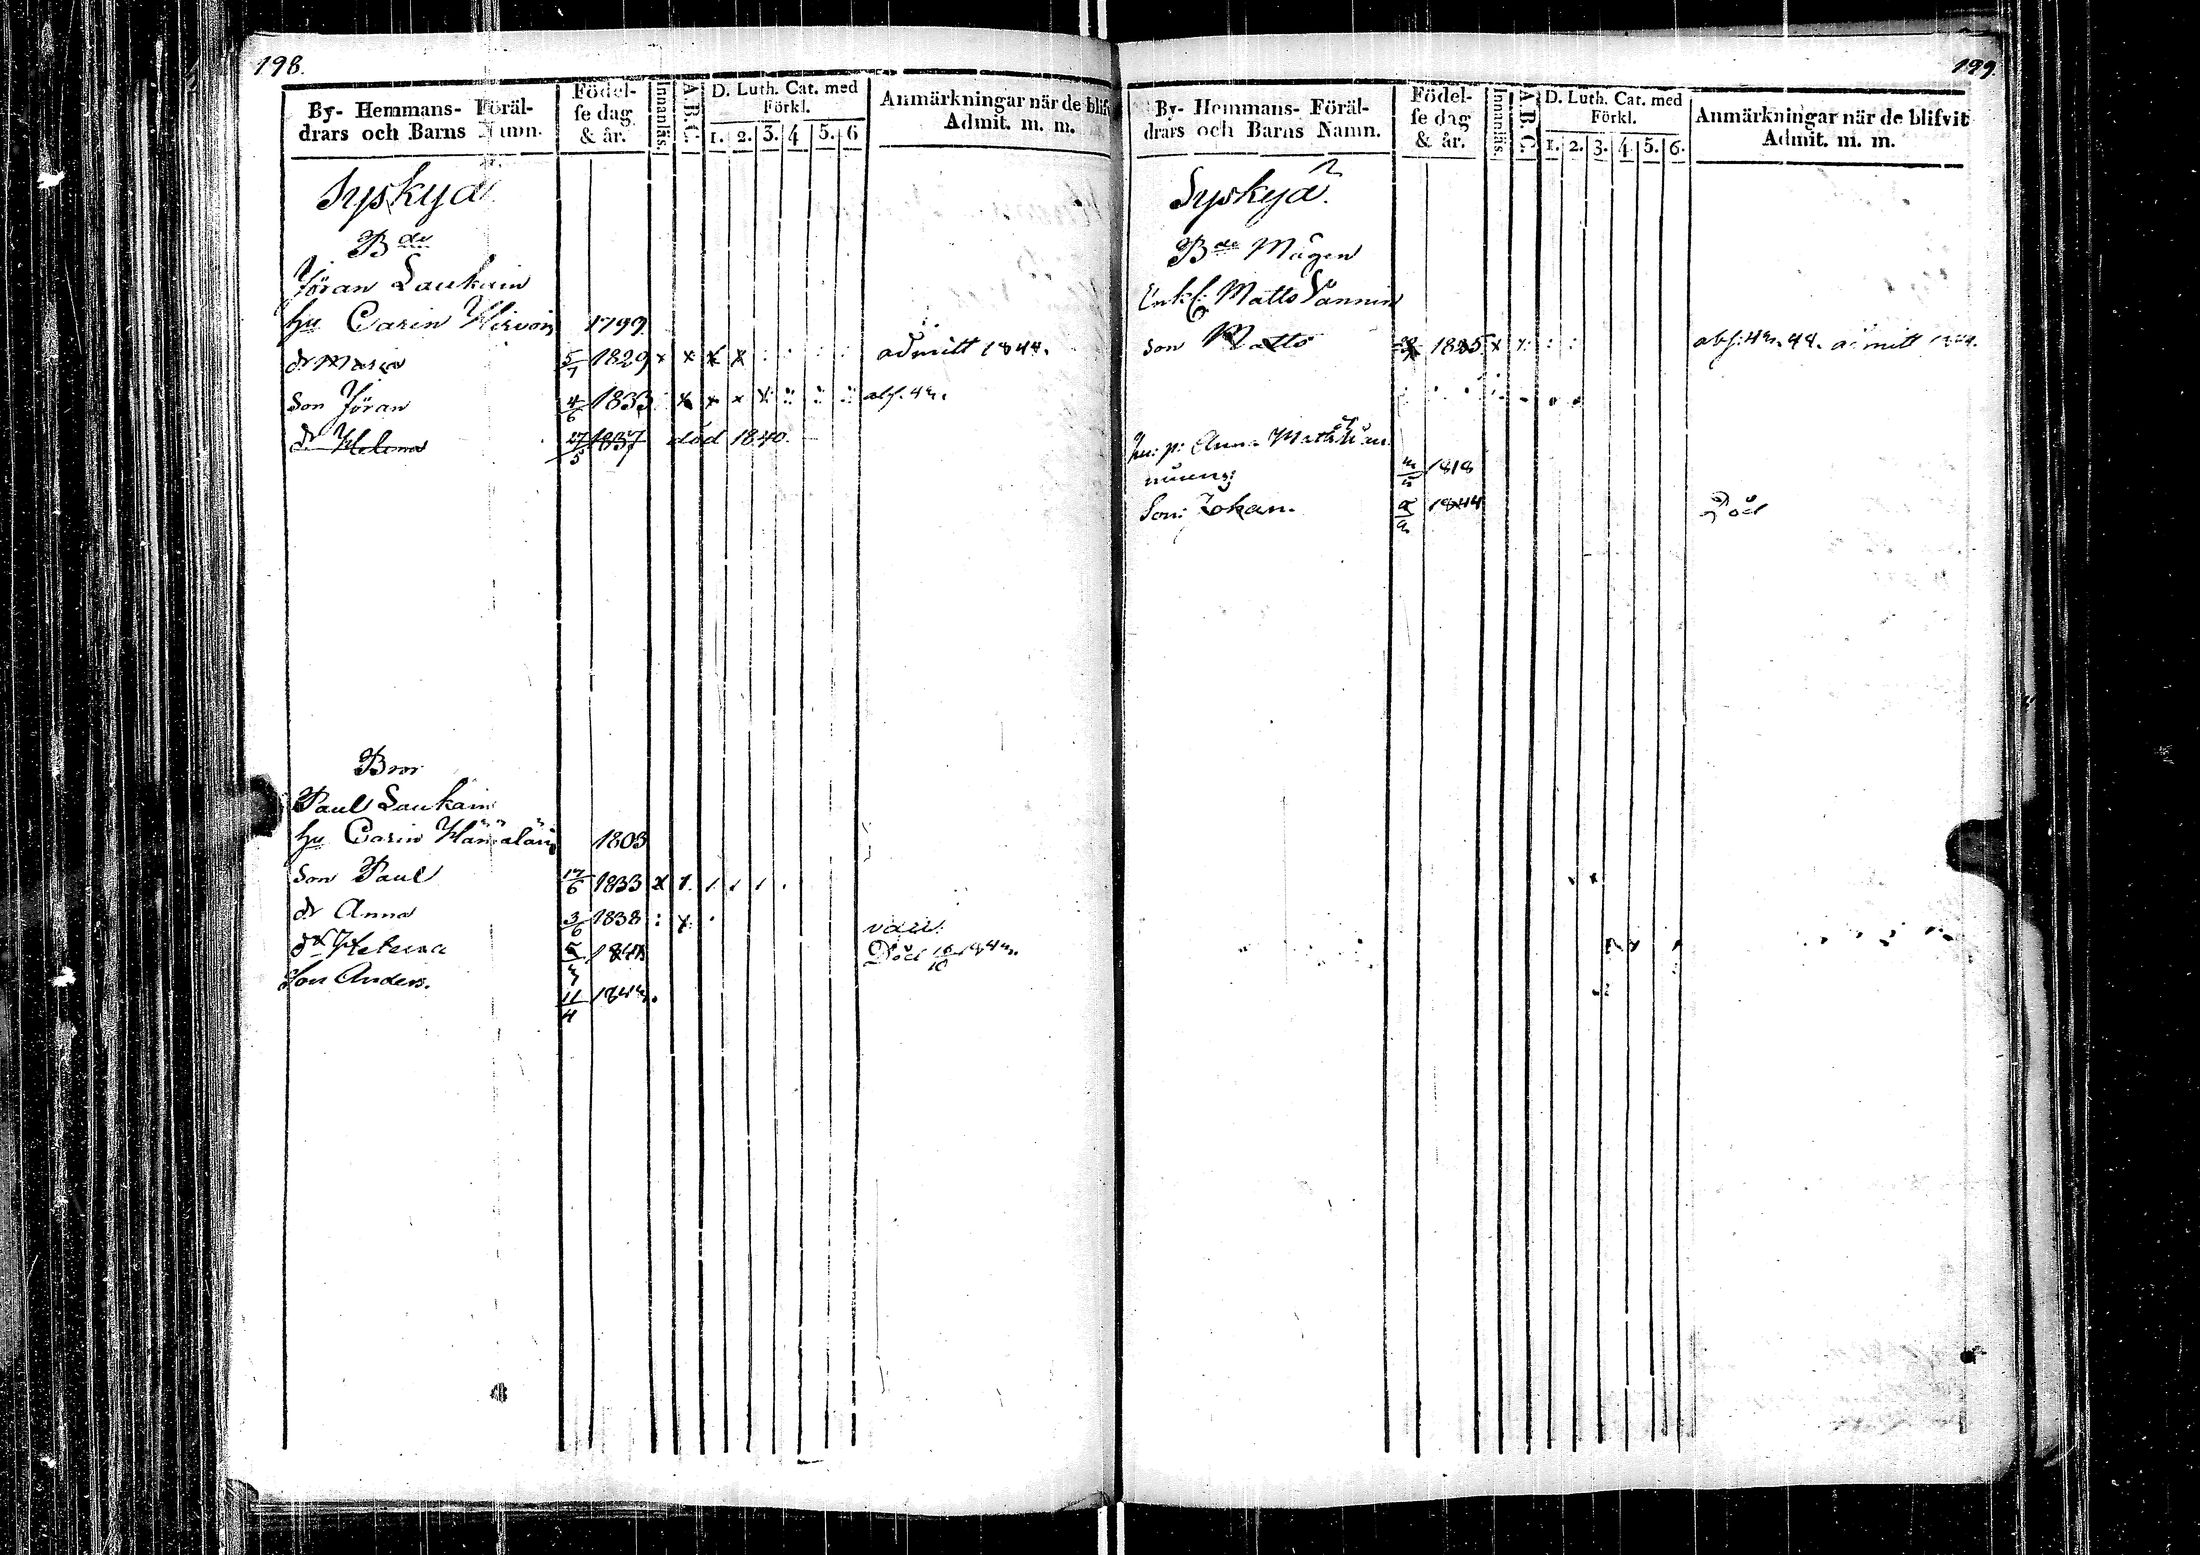 198.
By- Hemmans- Föräl-
drars och Barns Namn.
Födel-
se dag
& år.
Innanläs.
A.B.C.
D. Luth. Cat. med
Förkl.
1. 2. 3. 4 5. 6
Anmärkningar när de blifv
Admit. m. m.
Syskyä
Bde
Jöran Laukain
hu Carin Hirvoin 1799
dr Maria 5/7 1829 x x x x : : : : admitt 1844.
Son Jöran 4/6 1833
dr Helena 27/5 1837 död 1840.
Bror
Paul Laukain
hu Carin Hämäläin 1803
Son Paul 17/6 1833 x
dr Anna 3/6 1838
dr Helena
Son Anders. 11/4
199.
By- Hemmans- Föräl-
drars och Barns Namn.
Födel-
se dag
& år.
Innanläs.
A.B.C.
D. Luth. Cat. med
Förkl.
1. 2. 3. 4. 5. 6.
Anmärkningar när de blifvit
Admit. m. m.
Syskyä.
Bde Mågen
Enkl: Matts Pannin
Son Matts 1825 x
hu: p: Anna
1818
Son: Johan. 1844 Död